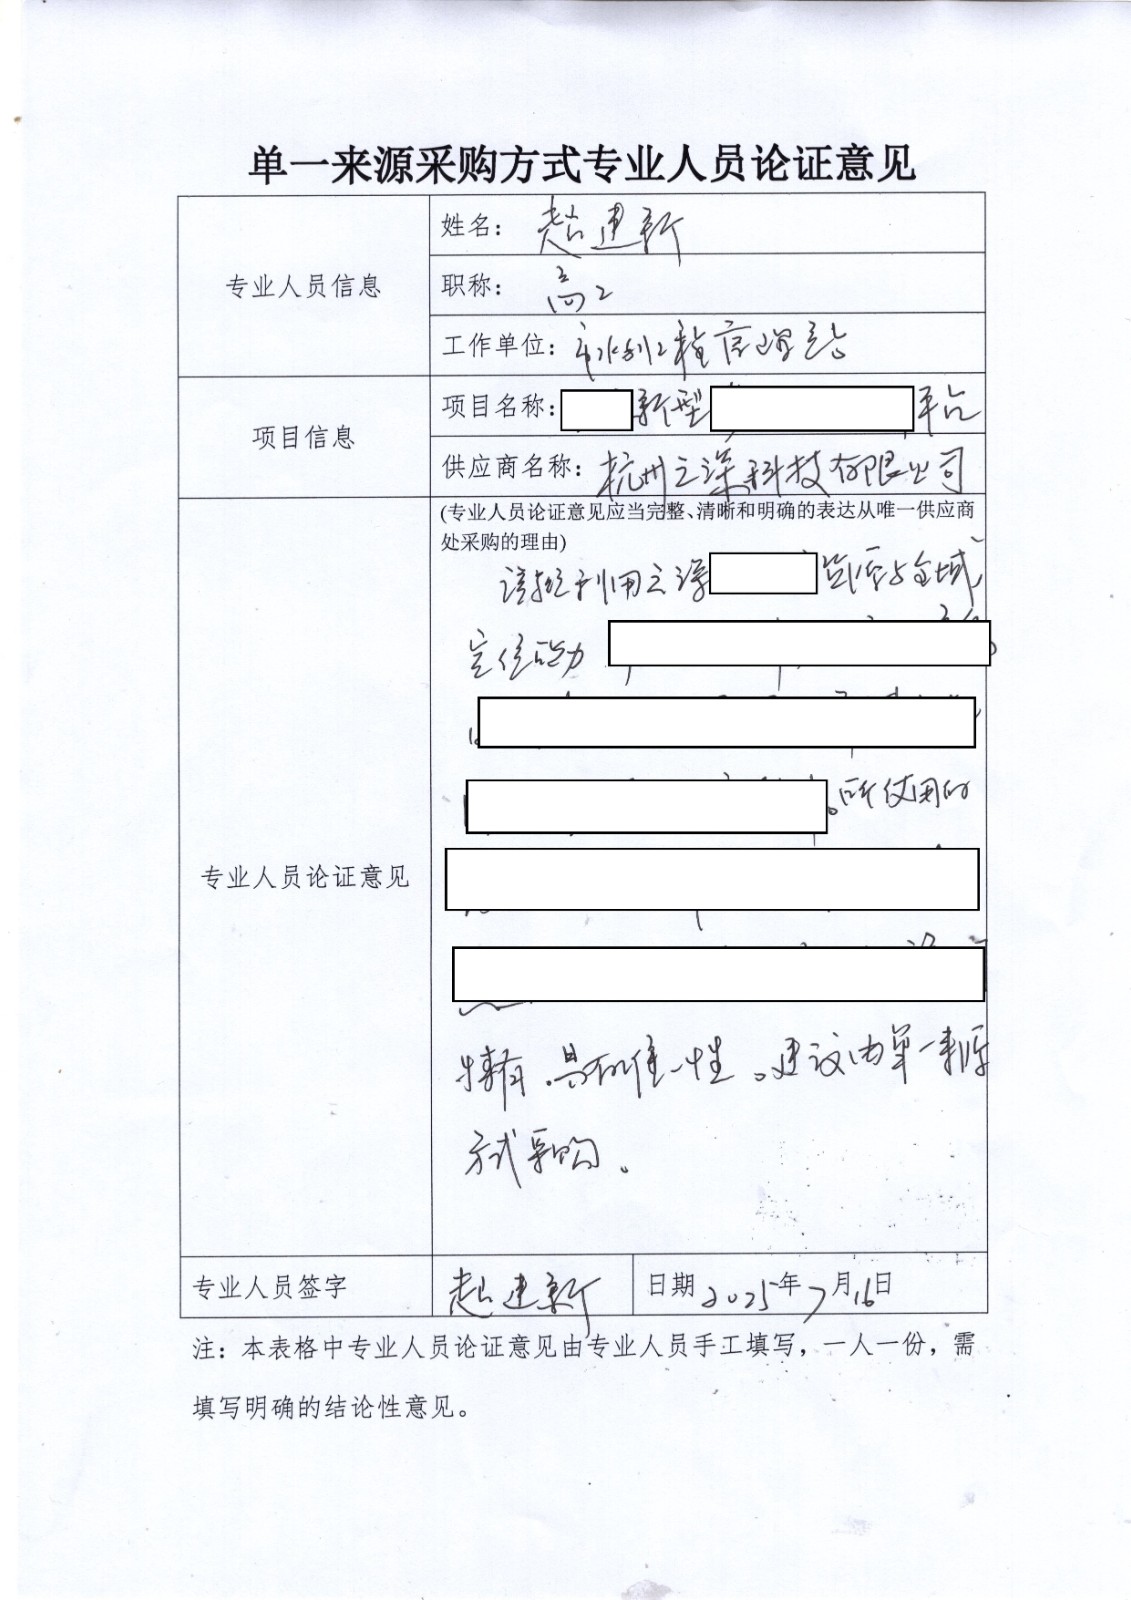 单一来源采购方式专业人员论证意见
专业人员信息
姓名：赵建新
职称：高工
工作单位：市水利工程管理站
项目信息
项目名称：新型 平台
供应商名称：杭州之深科技有限公司
专业人员论证意见
(专业人员论证意见应当完整、清晰和明确的表达从唯一供应商
处采购的理由)
该 利用之深 资源与全域
定位能力
。所使用的
特有，具有唯一性。建议由单一来源
方式采购。
专业人员签字
赵建新
日期 2025年7月16日
注：本表格中专业人员论证意见由专业人员手工填写，一人一份，需
填写明确的结论性意见。